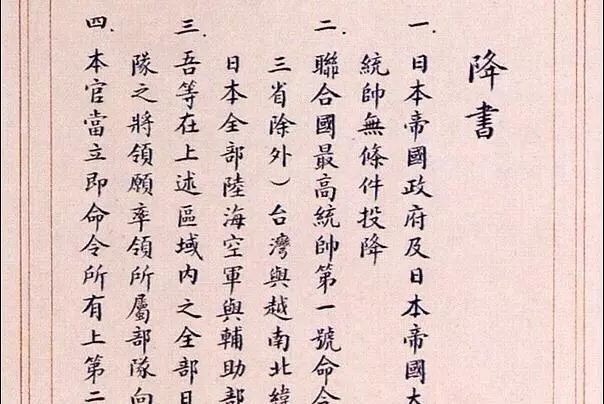 降書
一.日本帝國政府及日本帝國大
統帥無條件投降
二.聯合國最高統帥第一號命令
三省除外）台灣與越南北緯
日本全部陸海空軍與輔助部
三.吾等在上述區域內之全部日
隊之將領願率領所屬部隊向
四.本官當立即命令所有上第二